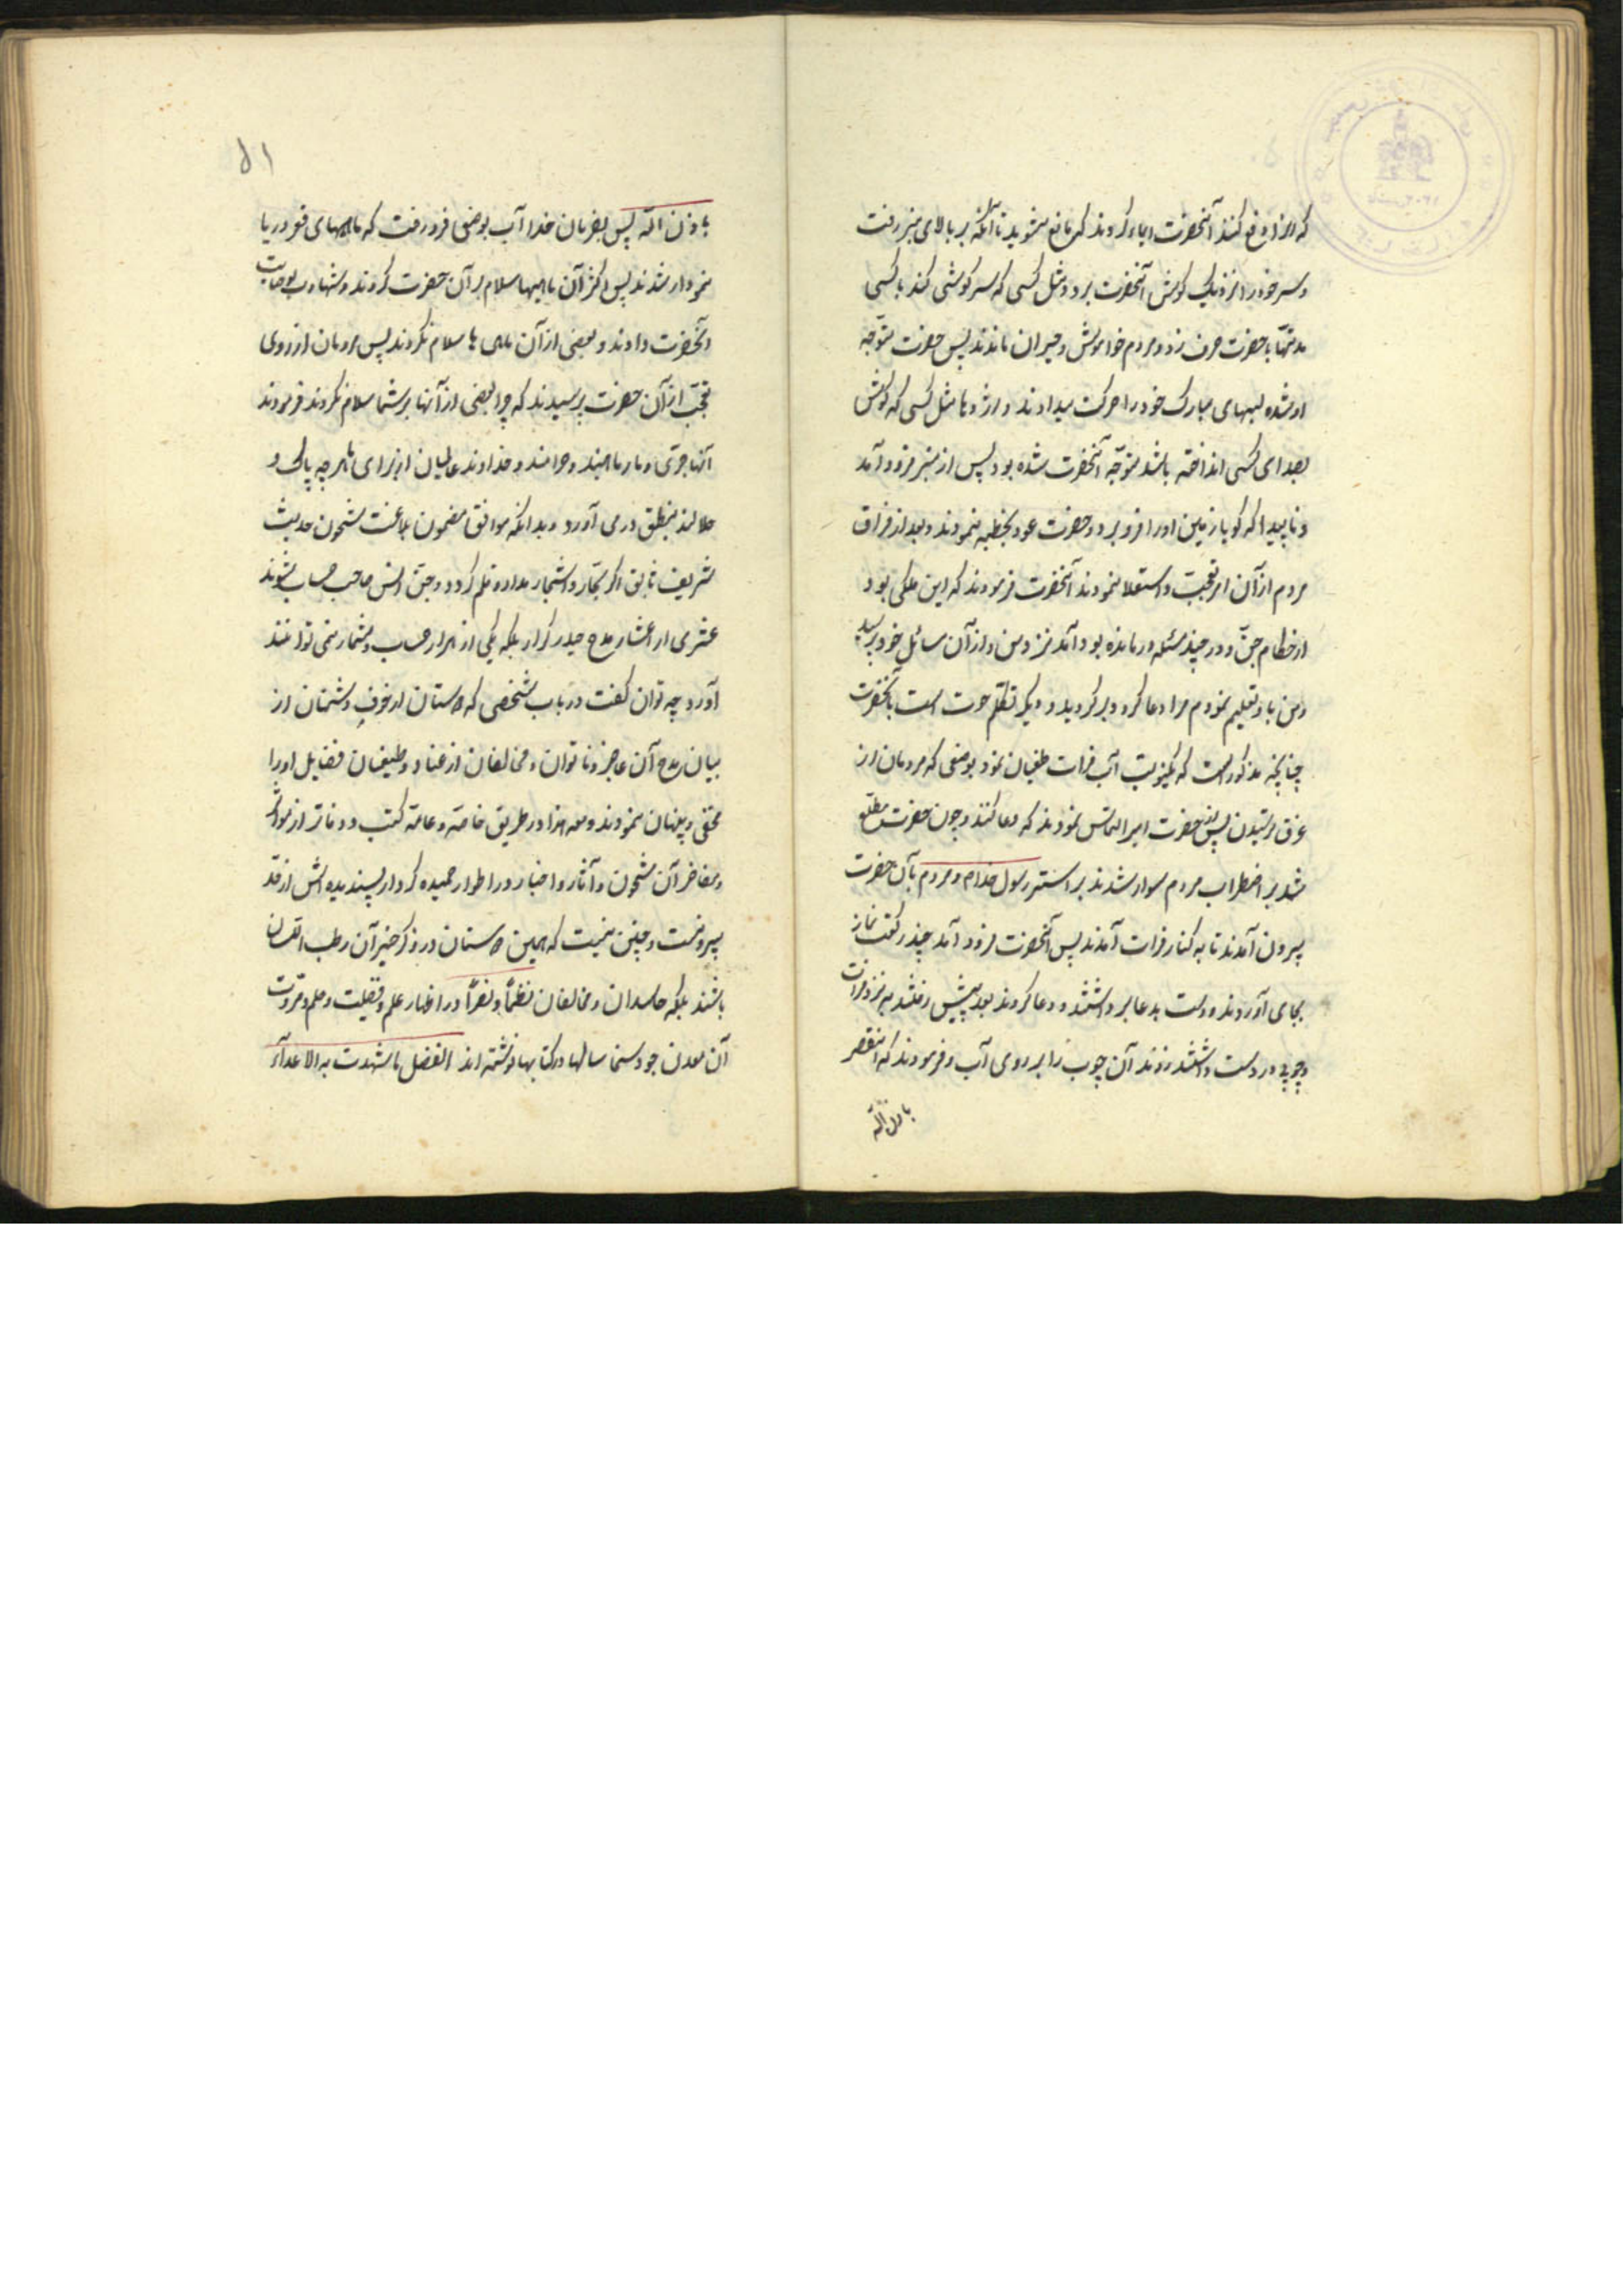 که او را دفع کنند آنحضرت ایماء کردند که مانع مشوید تا آنکه بر بالای منبر رفت
و سر خود را نزدیک کوش آنحضرت برد و مثل کسی که سرکوشی کند با کسی
مدتها با حضرت حرف زد و مردم خواموش و حیران ماندند پس حضرت متوجه
او شده لبهای مبارک خود را حرکت میدادند و اژدها مثل کسی که کوش
بصدای کسی انداخته باشد متوجه آنحضرت شده بود پس از منبر فرود آمد
و ناپیدا که کویا زمین او را فرو برد و حضرت عود بخطبه نمودند و بعد از فراق
مردم از آن امر تعجب و استعلا نمودند آنحضرت فرمودند که این ملکی بود
از حکام جن و در چند مسئله درمانده بود آمد نزد من و از آن مسائل خود پرسید
و من باو تعلیم نمودم مرا دعا کرد و برکردید و دیکر تکلم حوت است بآنحضرت
چنانچه مذکور است که یکنوبت آب فرات طغیان نمود بوضعی که مردمان از
غرق ترسیدن پس حضرت امیر التماس نمودند که دعا کنند و چون حضرت مطلع
شد بر اضطراب مردم سوار شدند بر استر رسول خدا و مردم بآن حضرت
بیرون آمدند تا به کنار فرات آمدند پس آنحضرت فرود آمد چند رکعت نماز
بجای آوردند و دست بدعا برداشتند و دعا کردند بعد پیش رفتند به نزد فرات
و چوبی در دست داشتند زدند آن چوب را بر روی آب و فرمودند که انتقص
باذن الله
۵۱
باذن الله پس بفرمان خدا آب بوضعی فرو رفت که ماهیهای قعر دریا
نمودار شدند پس اکثر آن ماهیها سلام بر آن حضرت کردند و شهادت بوصایت
آنحضرت دادند و بعضی از آن ماهی ها سلام نکردند پس مردمان از روی
تعجب از آن حضرت پرسیدند که چرا بعضی از آنها بر شما سلام نکردند فرمودند
آنها جری و مارماهیند و حرامند و خداوند عالمیان از برای ما هر چه پاک و
حلالند بنطق در می آورد و بدانکه موافق مضمون بلاغت مشحون حدیث
شریف سابق اکر بحار و اشجار مداد و قلم کردد و جن و انس صاحب حساب شوند
عشری از اعشار مدح حیدر کرار بلکه یکی از هزار حساب و شمار نمی توانند
آورد چه توان کفت در باب شخصی که دوستان از خوف دشمنان از
بیان مدح آن عاجز و ناتوان و مخالفان از عناد و طغیان فضایل او را
مخفی و پنهان نمودند و معهذا در طریق خاصه و عامه کتب و دفاتر از
و مفاخر آن مشحون و آثار و اخبار در اطوار حمیده کردار پسندیده اش از حد
بیرونست و چنین نیست که همین دوستان در ذکر خیر آن رطب اللسان
باشند بلکه حاسدان و مخالفان نظماً و نثراً در اظهار علم و فضیلت و حلم و مروت
آن معدن جود و سخا سالها در کتابها نوشته اند الفضل ما شهدت به الاعداء